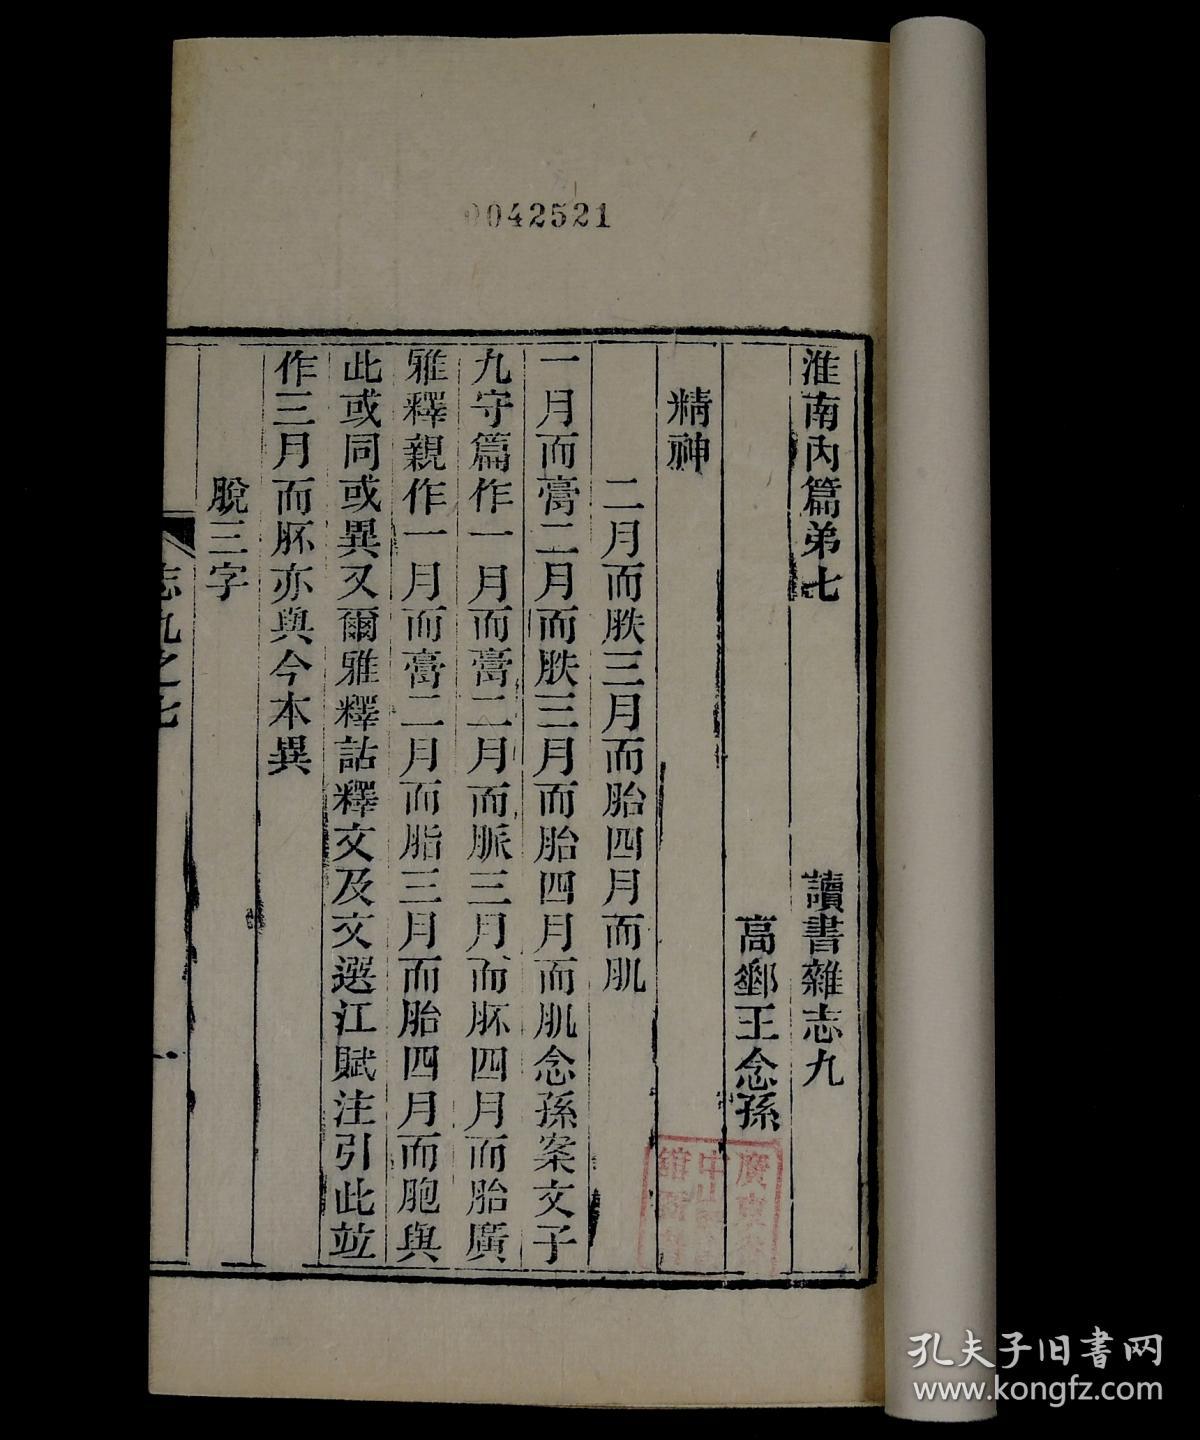 0042521
淮南內篇弟七　讀書雜志九
高郵王念孫
精神
二月而胅三月而胎四月而肌
一月而膏二月而胅三月而胎四月而肌念孫案文子
九守篇作一月而膏二月而脈三月而胚四月而胎廣
雅釋親作一月而膏二月而脂三月而胎四月而胞與
此或同或異又爾雅釋詁釋文及文選江賦注引此竝
作三月而胚亦與今本異
脫三字
志九之七
一
廣東省
中山
館
孔夫子旧书网
www.kongfz.com